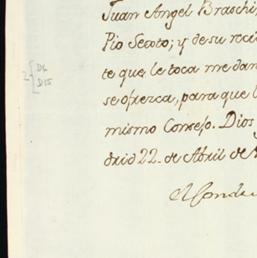 Juan Angel Braschi,
Pio Secoto; y de su reci
te que le toca me dan
se ofrezca, para que l
mismo Consejo. Dios
drid 22. de Abril de
El Conde
2 { D6
D15